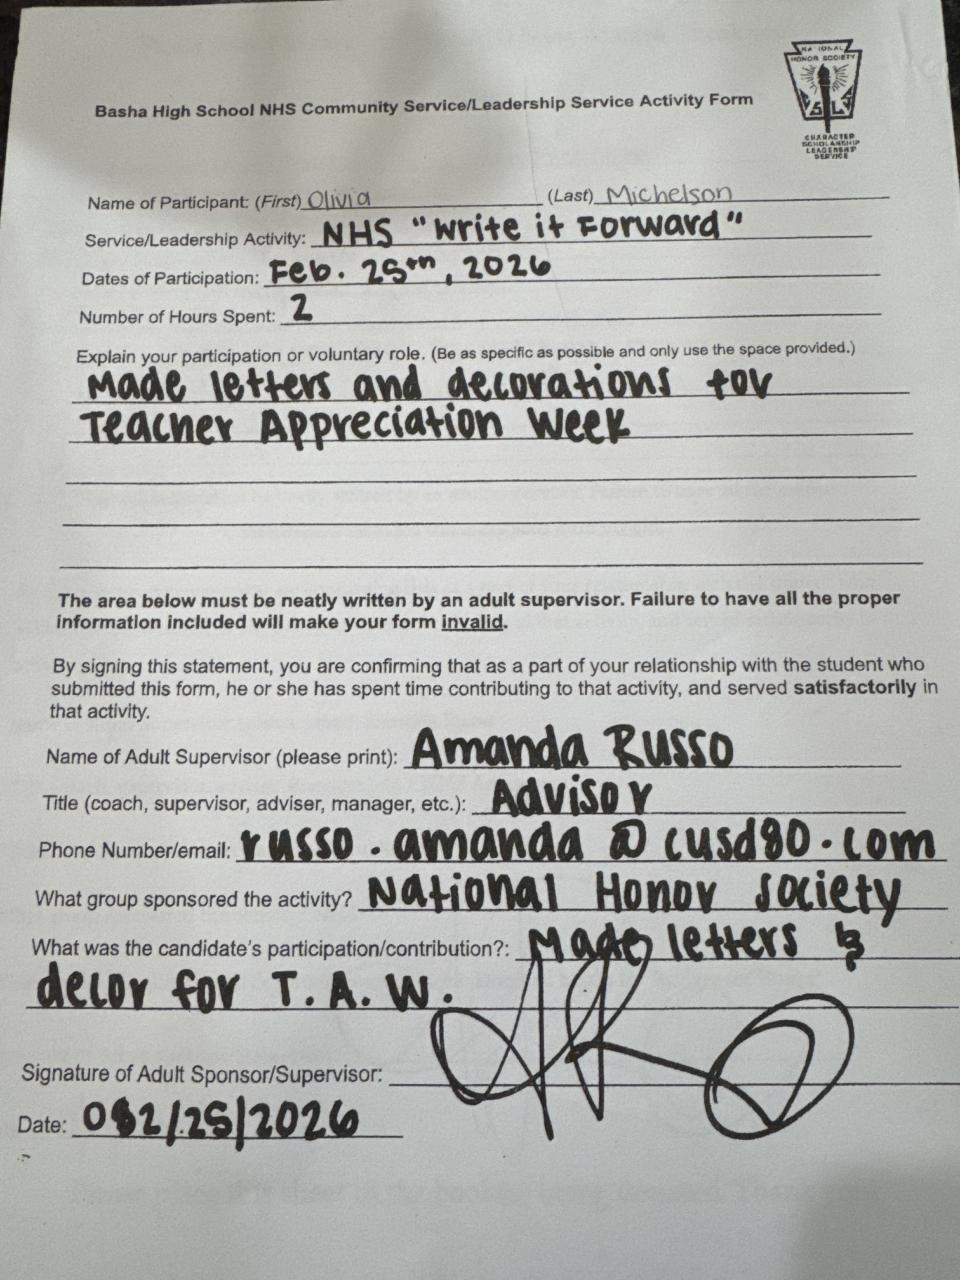 NATIONAL
HONOR SOCIETY
CSLS
CHARACTER
SCHOLARSHIP
LEADERSHIP
SERVICE
Basha High School NHS Community Service/Leadership Service Activity Form
Name of Participant: (First) Olivia (Last) Michelson
Service/Leadership Activity: NHS "Write it Forward"
Dates of Participation: Feb. 25th, 2026
Number of Hours Spent: 2
Explain your participation or voluntary role. (Be as specific as possible and only use the space provided.)
Made letters and decorations for
Teacher Appreciation Week
The area below must be neatly written by an adult supervisor. Failure to have all the proper
information included will make your form invalid.
By signing this statement, you are confirming that as a part of your relationship with the student who
submitted this form, he or she has spent time contributing to that activity, and served satisfactorily in
that activity.
Name of Adult Supervisor (please print): Amanda Russo
Title (coach, supervisor, adviser, manager, etc.): Advisor
Phone Number/email: russo.amanda@cusd80.com
What group sponsored the activity? National Honor Society
What was the candidate's participation/contribution?: Made letters &
decor for T.A.W.
Signature of Adult Sponsor/Supervisor:
Date: 02/25/2026